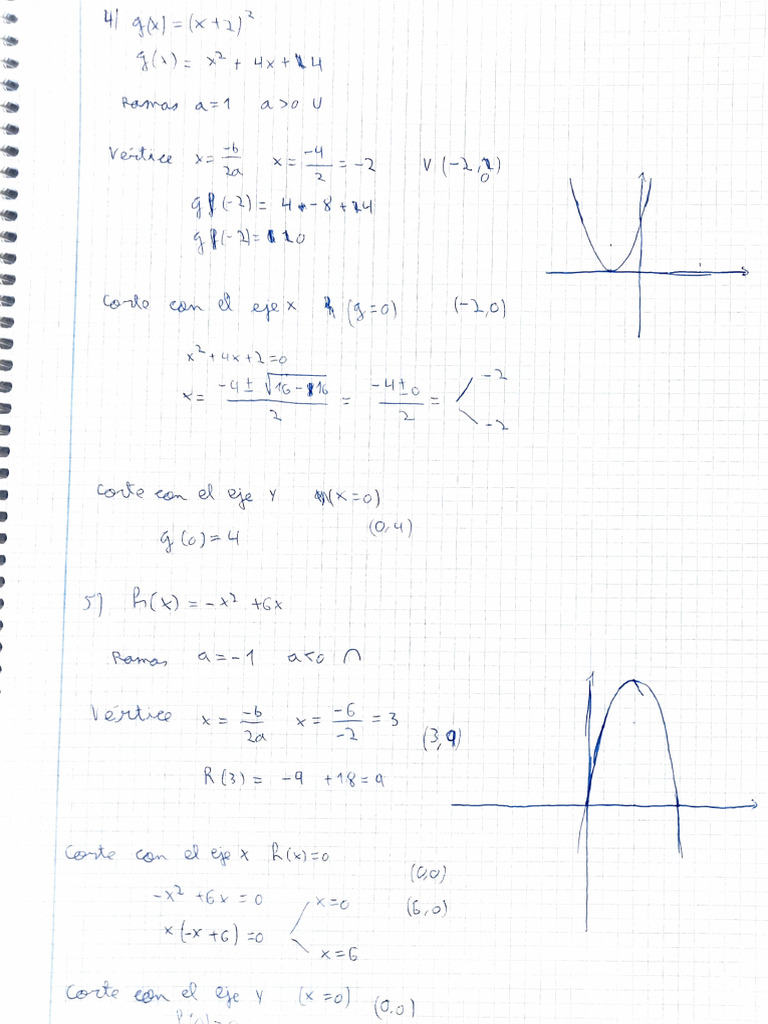 4) g(x) = (x+2)²
g(x) = x² + 4x + 4
Ramas a=1 a>0 ∪
Vértice x = -b/2a x = -4/2 = -2 V (-2, 0)
g(-2) = 4 - 8 + 4
g(-2) = 0
Corte con el eje x (g=0) (-2,0)
x² + 4x + 2 = 0
x = (-4 ± √16-16)/2 = (-4 ± 0)/2 = < -2
-2
Corte con el eje y (x=0)
(0,4)
g(0) = 4
5) h(x) = -x² + 6x
Ramas a = -1 a<0 ∩
Vértice x = -b/2a x = -6/-2 = 3 (3,9)
h(3) = -9 + 18 = 9
Corte con el eje x h(x)=0
(0,0)
-x² + 6x = 0 x=0 (6,0)
x(-x+6) = 0
x=6
Corte con el eje y (x=0) (0,0)